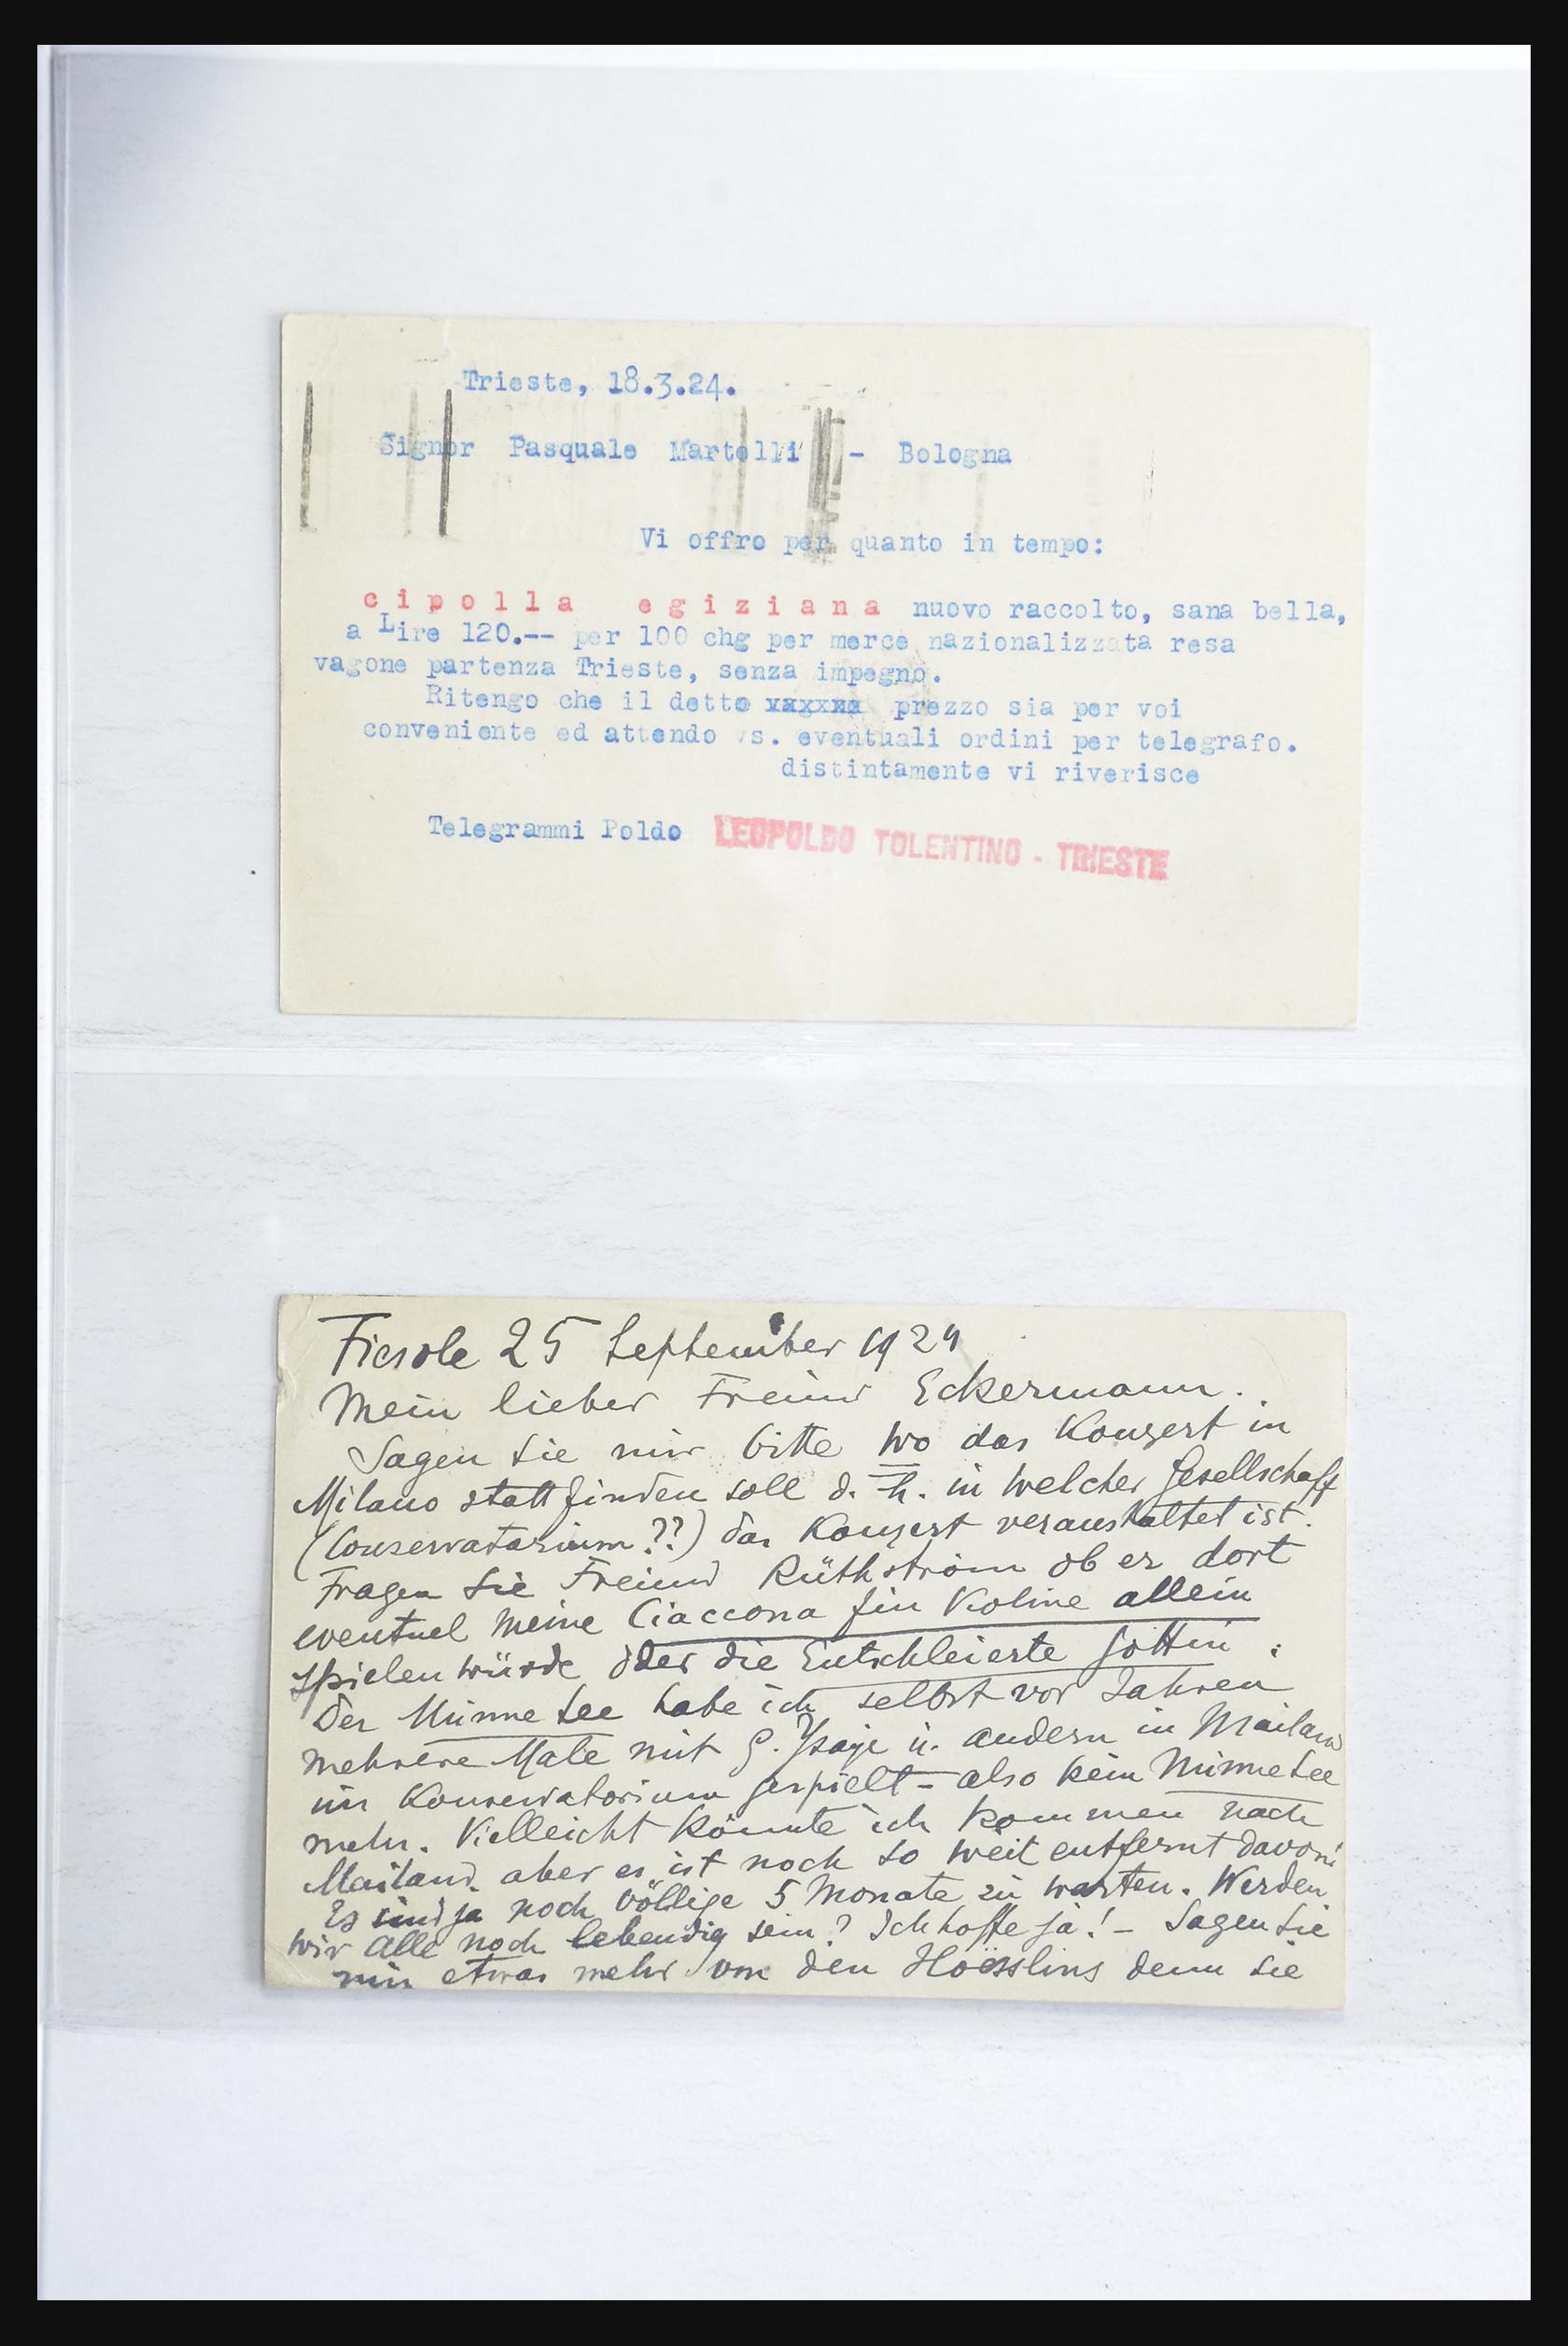 Trieste, 18.3.24.
Signor Pasquale Martelli - Bologna
Vi offro per quanto in tempo:
c i p o l l a e g i z i a n a nuovo raccolto, sana bella,
a Lire 120.-- per 100 chg per merce nazionalizzata resa
vagone partenza Trieste, senza impegno.
Ritengo che il detto xxxxxx prezzo sia per voi
conveniente ed attendo vs. eventuali ordini per telegrafo.
distintamente vi riverisce
Telegrammi Poldo LEOPOLDO TOLENTINO - TRIESTE
Fiesole 25 September 1929
Mein lieber Freund Eckermann.
Sagen Sie mir bitte wo das Konzert in
Milano stattfinden soll d. h. in welcher Gesellschaft
(Conservatorium??) das Konzert veranstaltet ist.
Fragen Sie Freund Rüthström ob er dort
eventuel meine Ciaccona für Violine allein
spielen würde oder die Entschleierte Göttin.
Der Minnesee habe ich selbst vor Jahren
mehrere Male mit Ysaÿe u. andern in Mailand
im Konservatorium gespielt - also kein Minnesee
mehr. Vielleicht könnte ich kommen nach
Mailand. aber es ist noch so weit entfernt davon!
Es sind ja noch völlige 5 Monate zu warten. Werden
wir alle noch lebendig sein? Ich hoffe ja! - Sagen Sie
mir etwas mehr von den Hoesslins denn sie